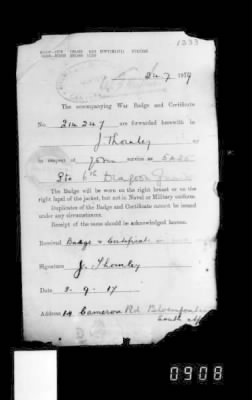 1233
24 7 1917
The accompanying War Badge and Certificate
No. 214247 are forwarded herewith to
J Thomley
in respect of your service as
Pte 6th Dragoon Guards
The Badge will be worn on the right breast or on the
right lapel of the jacket, but not in Naval or Military uniform.
Duplicates of the Badge and Certificate cannot be issued
under any circumstances.
Receipt of the same should be acknowledged hereon.
Received Badge & Certificate
Signature J. Thomley
Date 3. 9. 17
Address 14 Cameron Rd Bloemfontein
South
0908